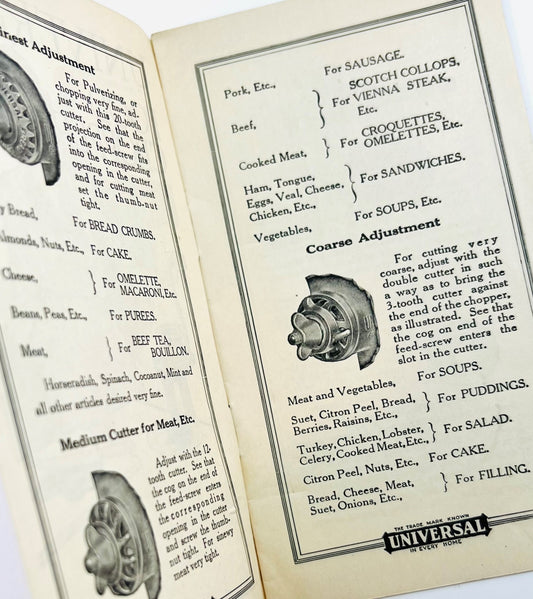 inest Adjustment
For Pulverizing, or
chopping very fine, ad-
just with this 20-tooth
cutter. See that the
projection on the end
of the feed-screw fits
into the corresponding
opening in the cutter,
and for cutting meat
set the thumb-nut
tight.
y Bread, For BREAD CRUMBS.
Almonds, Nuts, Etc., For CAKE.
Cheese, } For OMELETTE,
MACARONI, Etc.
Beans, Peas, Etc., For PUREES.
Meat, } For BEEF TEA,
BOUILLON.
Horseradish, Spinach, Cocoanut, Mint and
all other articles desired very fine.
Medium Cutter for Meat, Etc.
Adjust with the 12-
tooth cutter. See that
the cog on the end of
the feed-screw enters
the corresponding
opening in the cutter
and screw the thumb-
nut tight. For sinewy
meat very tight.
Pork, Etc., For SAUSAGE.
Beef, } For SCOTCH COLLOPS,
VIENNA STEAK,
Etc.
Cooked Meat, } For CROQUETTES,
OMELETTES, Etc.
Ham, Tongue,
Eggs, Veal, Cheese, } For SANDWICHES.
Chicken, Etc.,
Vegetables, For SOUPS, Etc.
Coarse Adjustment
For cutting very
coarse, adjust with the
double cutter in such
a way as to bring the
3-tooth cutter against
the end of the chopper,
as illustrated. See that
the cog on end of the
feed-screw enters the
slot in the cutter.
Meat and Vegetables, For SOUPS.
Suet, Citron Peel, Bread, } For PUDDINGS.
Berries, Raisins, Etc.,
Turkey, Chicken, Lobster, } For SALAD.
Celery, Cooked Meat, Etc.,
Citron Peel, Nuts, Etc., For CAKE.
Bread, Cheese, Meat, } For FILLING.
Suet, Onions, Etc.,
THE TRADE MARK KNOWN
UNIVERSAL
IN EVERY HOME